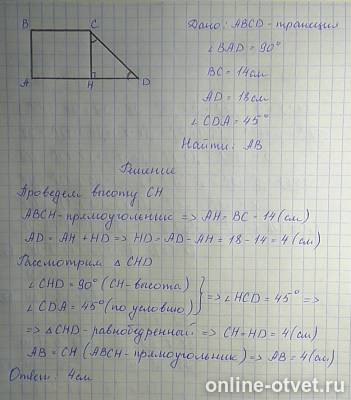 B C
A H D
Дано: ABCD-трапеция
∠BAD = 90°
BC = 14см
AD = 18см
∠CDA = 45°
Найти: AB
Решение
Проведем высоту CH
ABCH-прямоугольник => AH = BC = 14 (см)
AD = AH + HD => HD = AD - AH = 18 - 14 = 4 (см)
Рассмотрим △ CHD
∠CHD = 90° (CH-высота)
∠CDA = 45° (по условию) } => ∠HCD = 45° =>
=> △CHD-равнобедренный => CH = HD = 4 (см)
AB = CH (ABCH-прямоугольник) => AB = 4 (см)
Ответ: 4см
online-otvet.ru